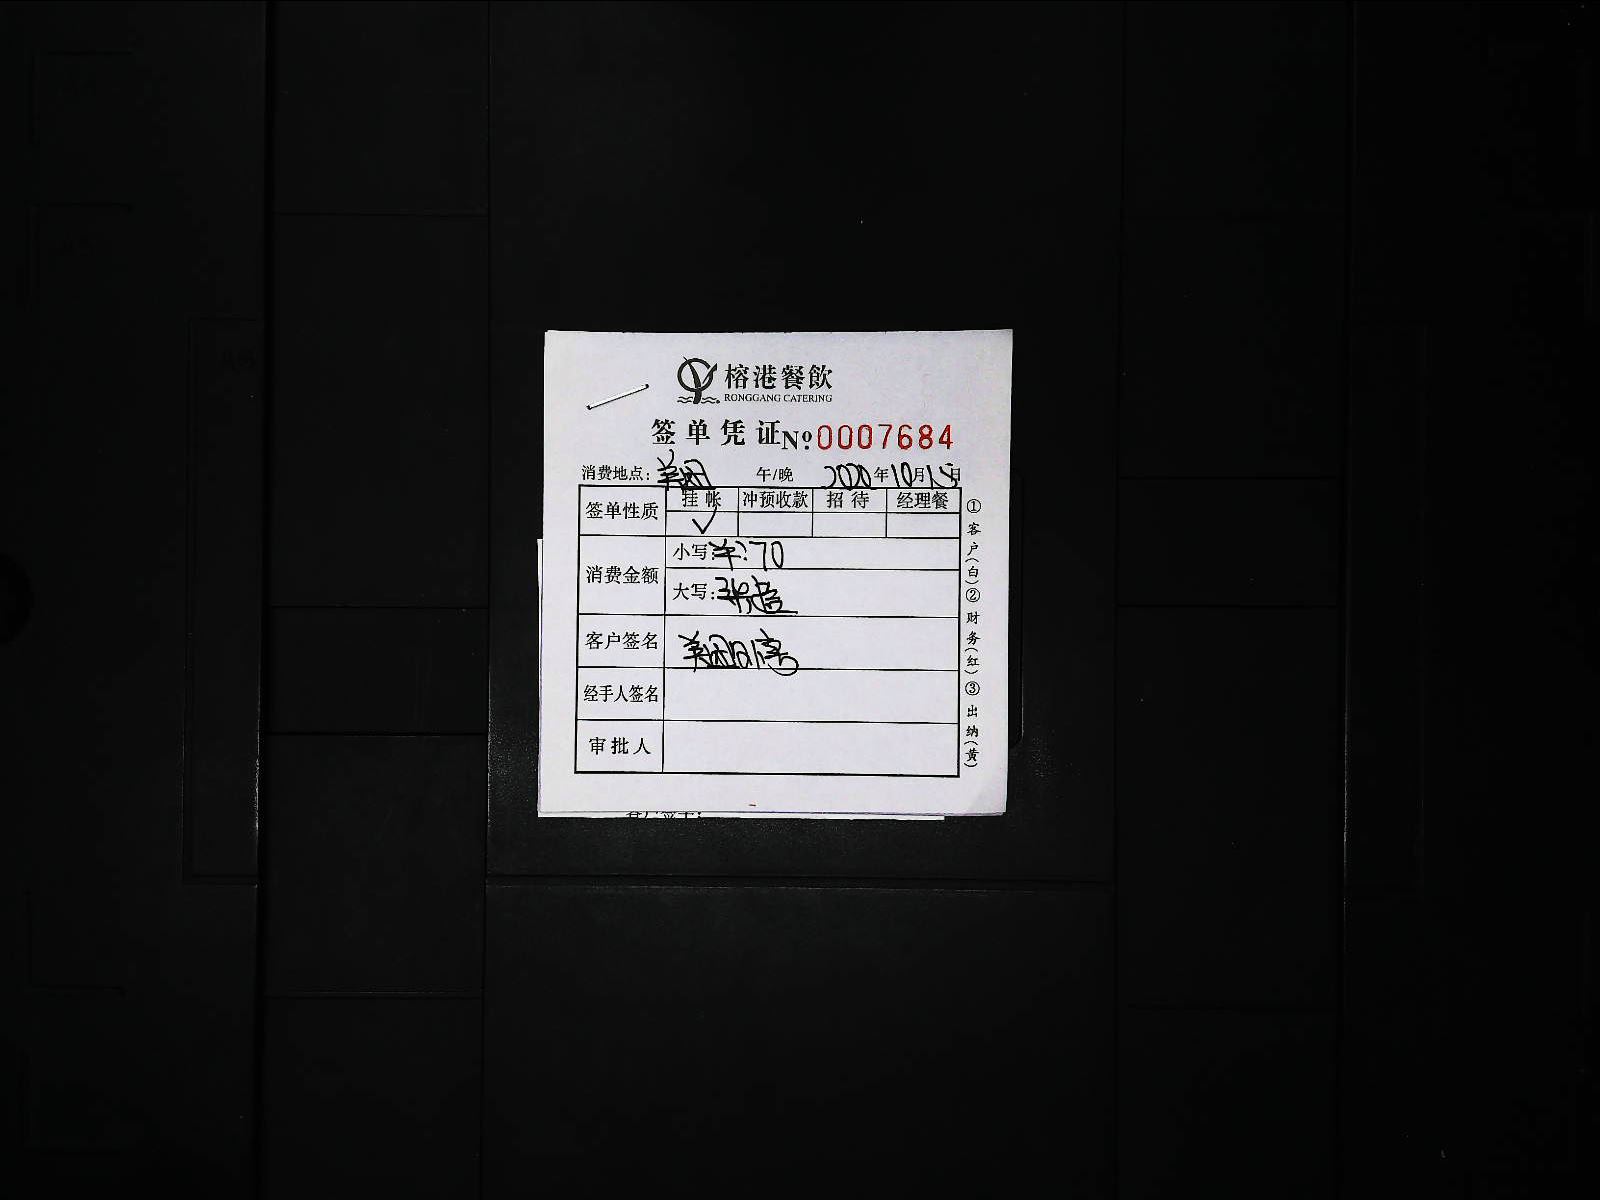 榕港餐飲
RONGGANG CATERING
签单凭证 №:0007684
消费地点:美团 午/晚 2020年10月15日
签单性质 挂帐 冲预收款 招待 经理餐
✓
消费金额 小写:¥:70
大写:
客户签名 美团
经手人签名
审批人
①客户(白)②财务(红)③出纳(黄)